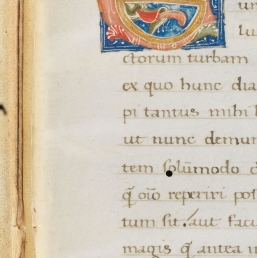 un
lu
ctorum turbam
ex quo hunc dia
pi tantus mihi l
ut nunc demun
tem solūmodo d
q̄ oīo reperiri pos
tum sit, aut facu
magis q̄ antea u